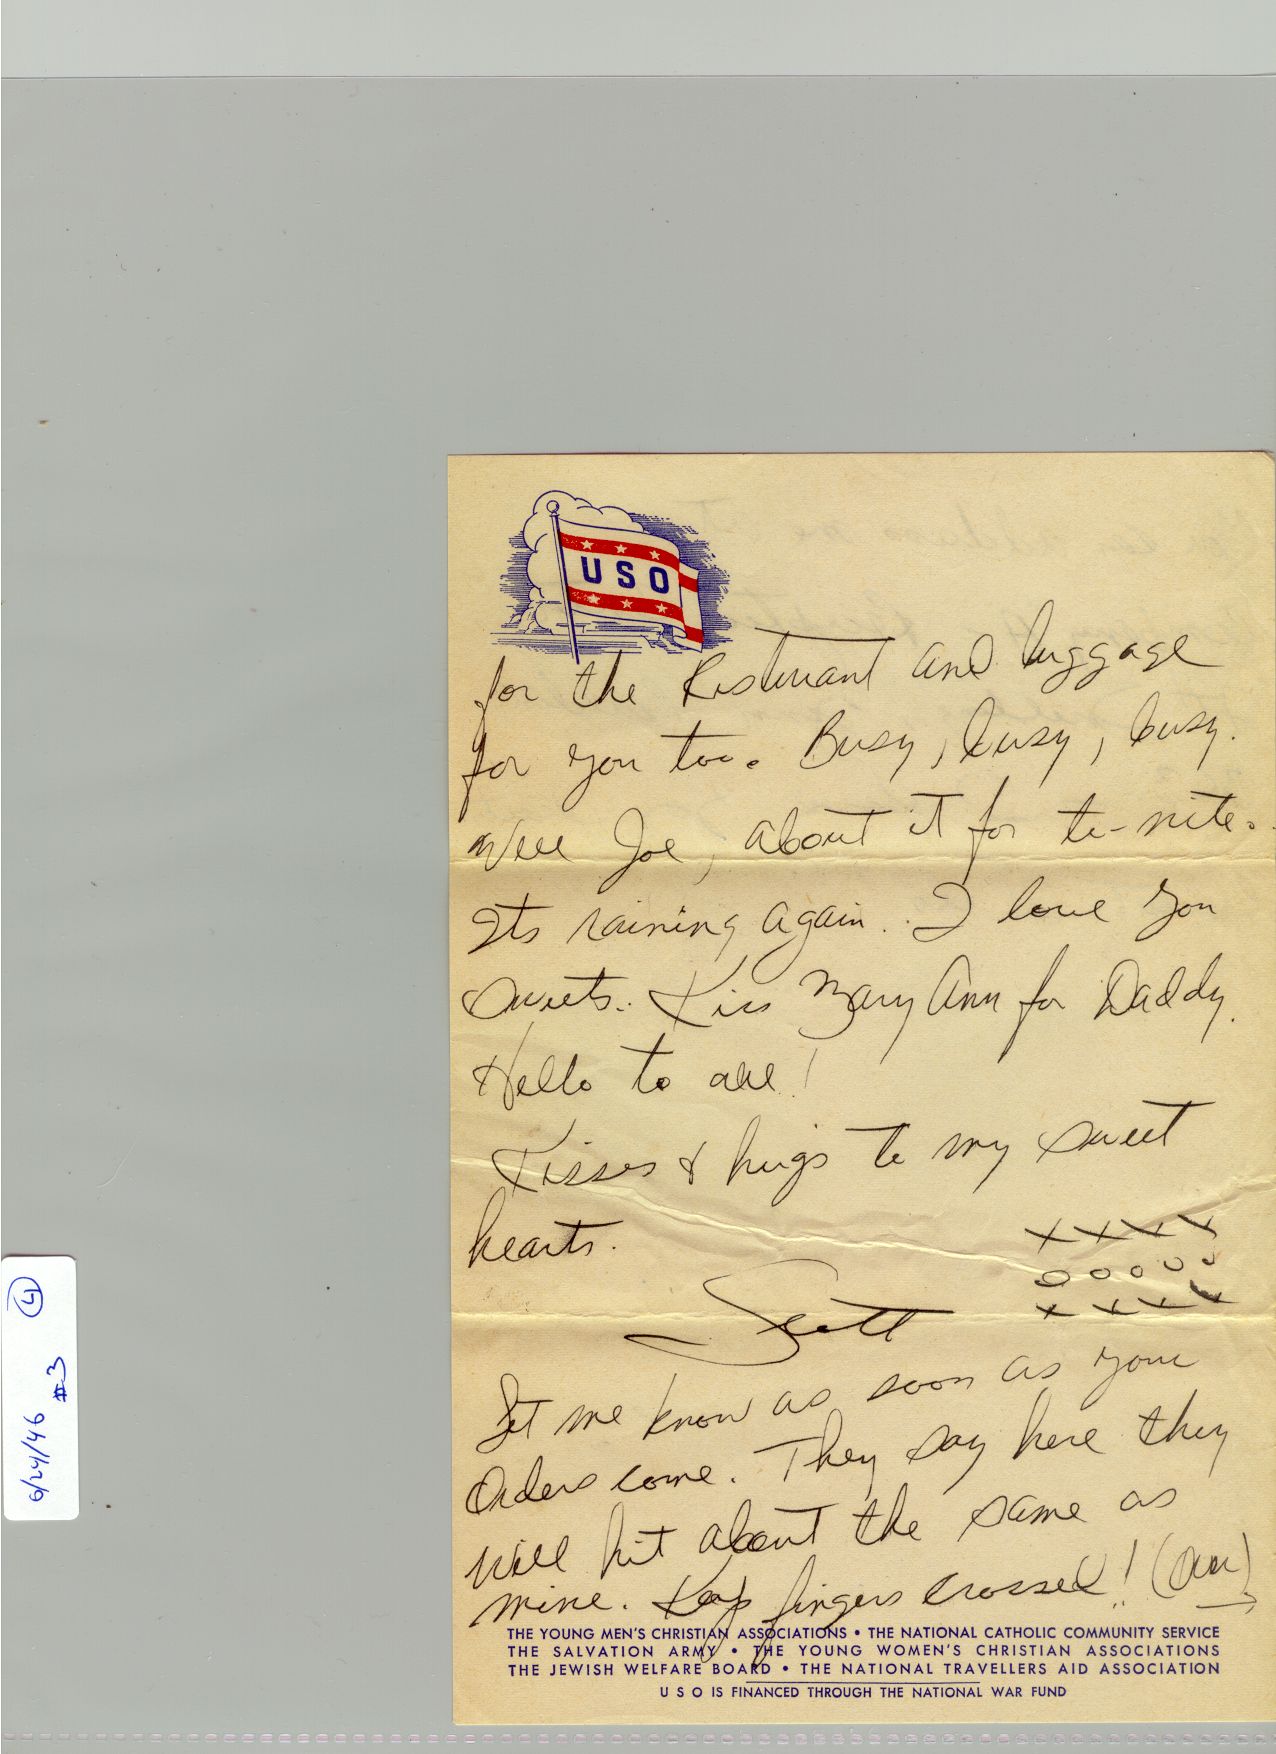 USO
for the Resturant and luggage
for you too. Busy, busy, busy.
Well Joe, about it for to-nite.
Its raining again. I love you
sweets. Kiss Mary Ann for Daddy.
Hello to all!
Kisses & hugs to my sweet
hearts.
xxxx
ooooo
xxxx
Scott
Let me know as soon as your
orders come. They say here they
will hit about the same as
mine. Keep fingers crossed!! (over)
THE YOUNG MEN'S CHRISTIAN ASSOCIATIONS • THE NATIONAL CATHOLIC COMMUNITY SERVICE
THE SALVATION ARMY • THE YOUNG WOMEN'S CHRISTIAN ASSOCIATIONS
THE JEWISH WELFARE BOARD • THE NATIONAL TRAVELLERS AID ASSOCIATION
U S O IS FINANCED THROUGH THE NATIONAL WAR FUND
6/24/46 4
#3